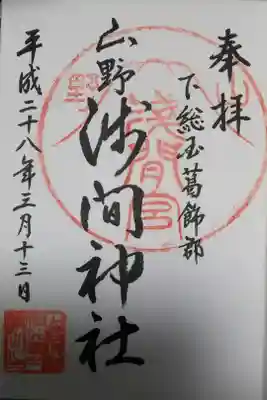 奉拝
下総国葛飾郡
山野浅間神社
平成二十八年三月十三日